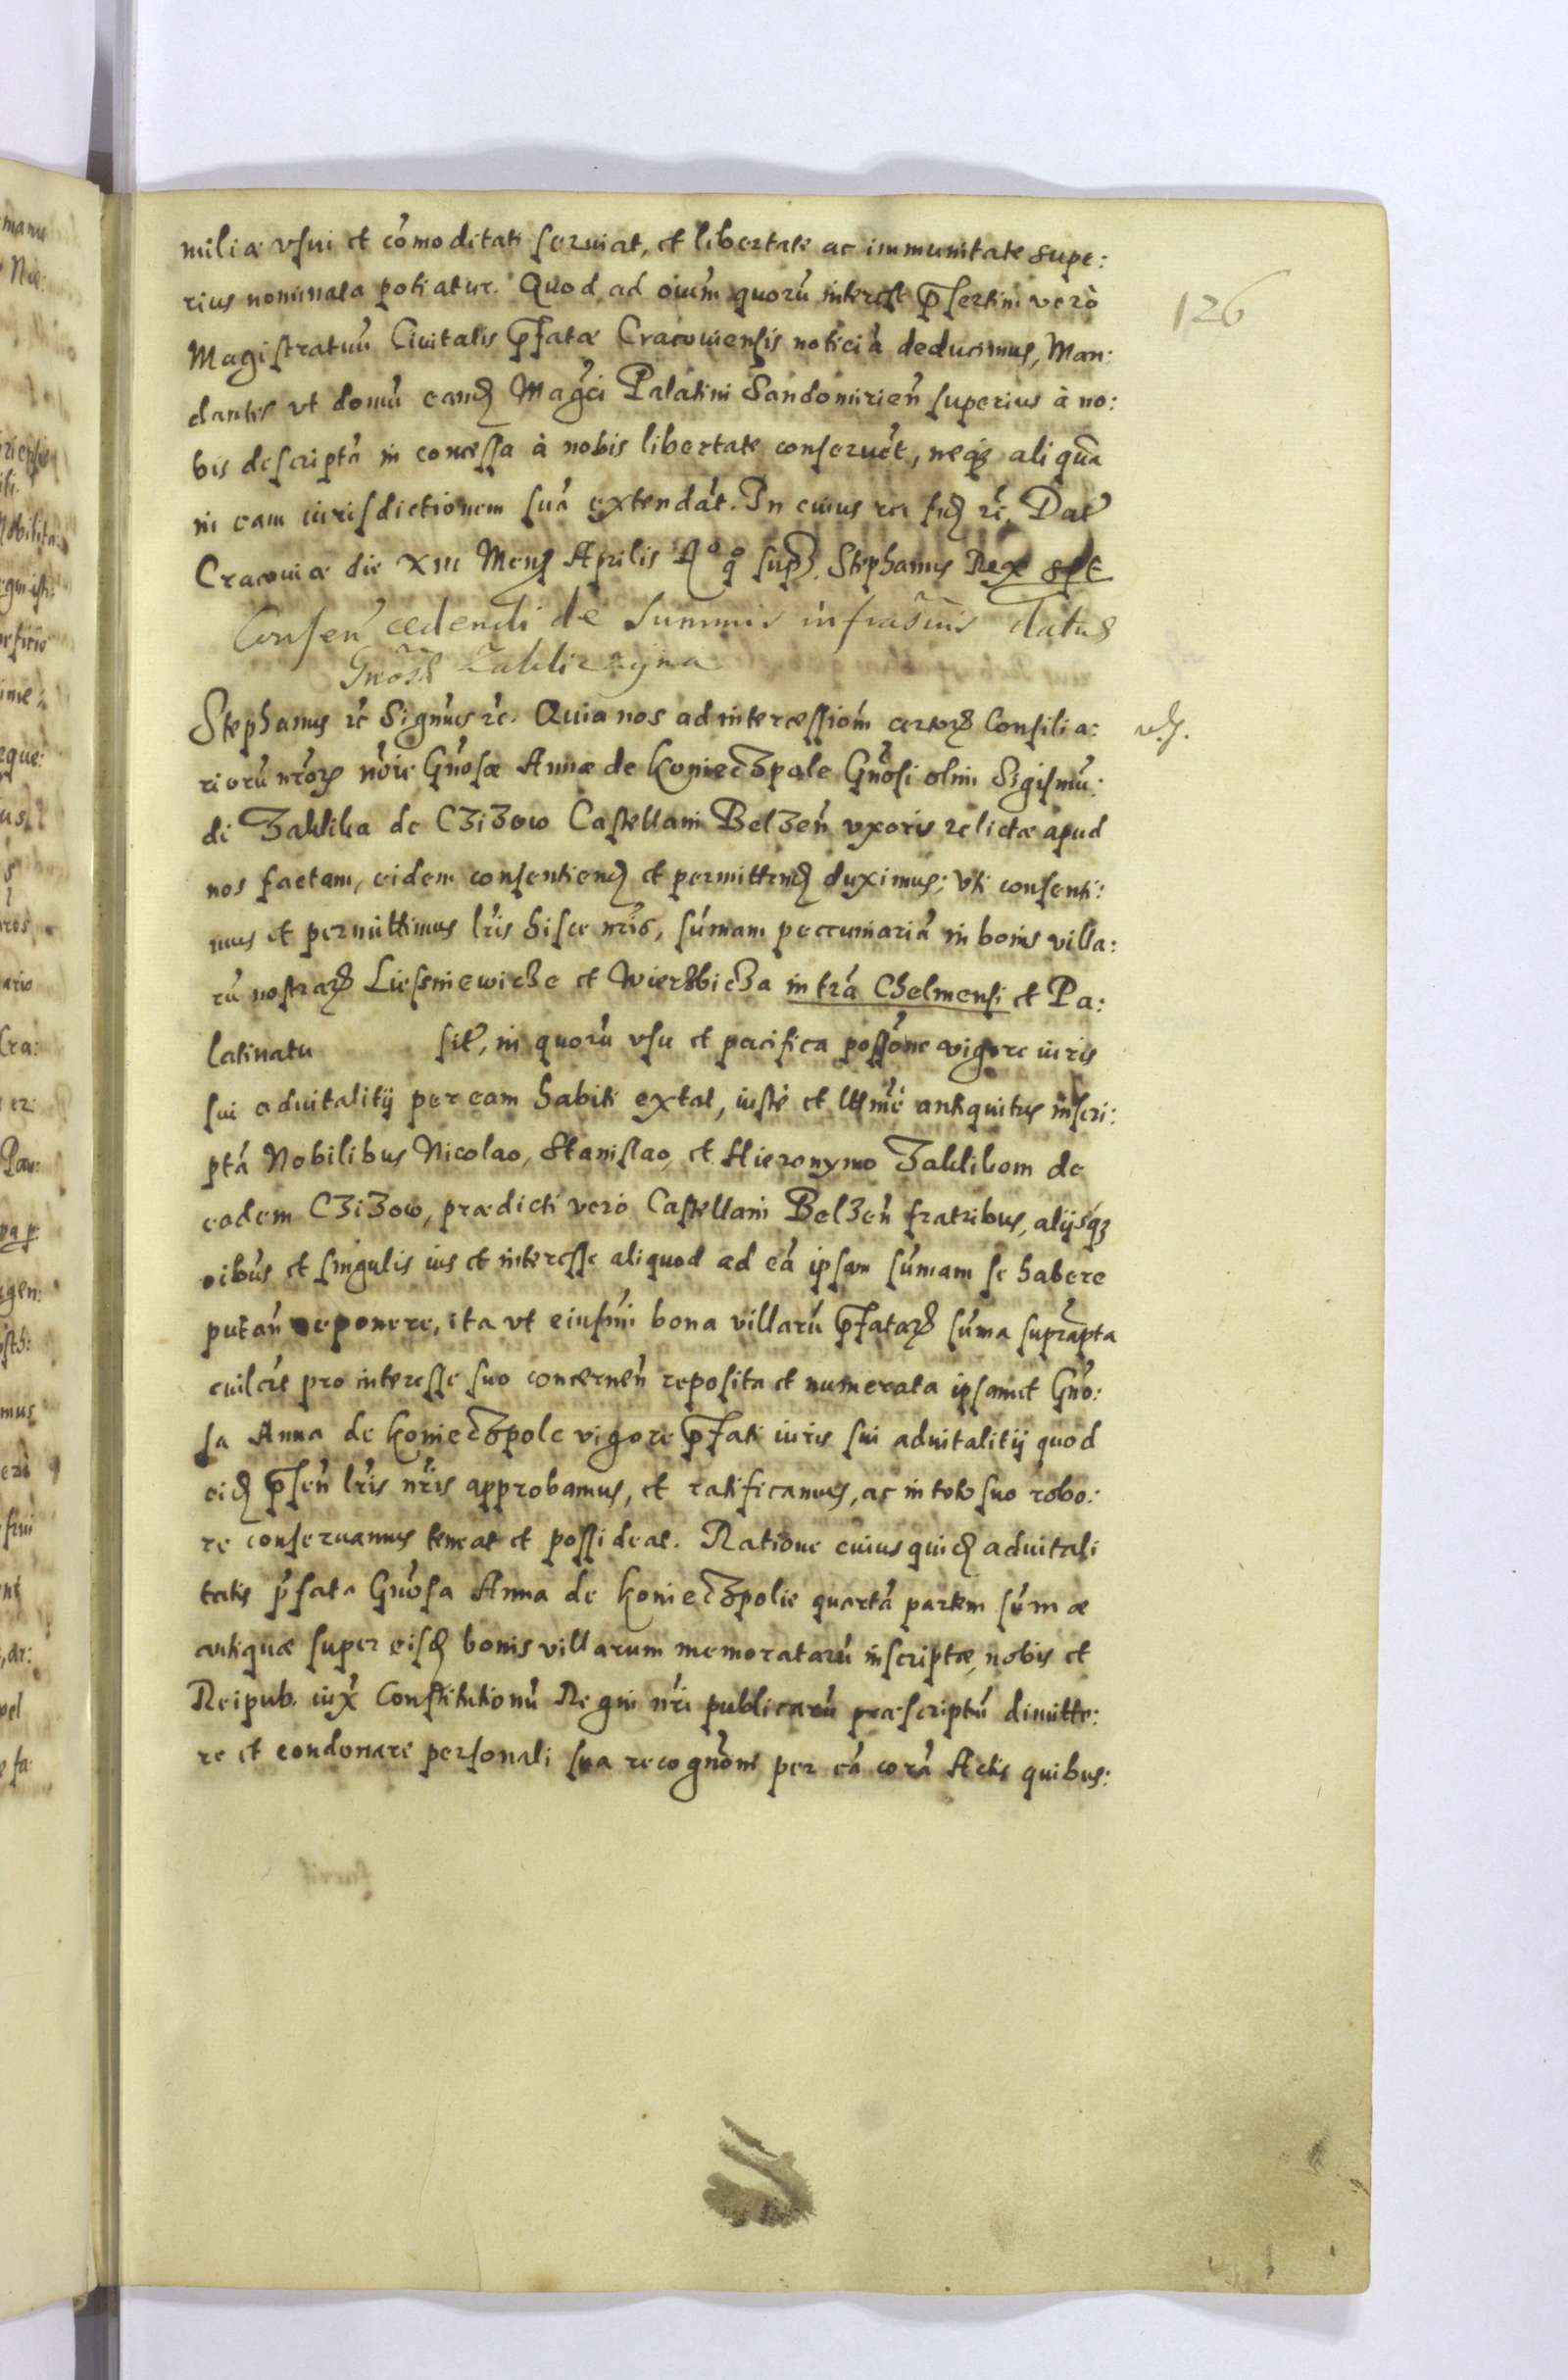 miliæ vsui et cómoditati seruiat, et libertate ac immunitate supe:
rius nominata potiatur. Quod ad oium quorú interest p̃sertim verò
Magistratuũ Ciuitatis p̃fatæ Cracouiensis noticiá deducimus, Man:
dantes vt domú eandẽ Magci Palatini Sandomirień superius à no:
bis descriptá in concessa à nobis libertate conseruét, neq₃ aliquã
in eam iurisdictionem suá extendát. In cuius rei fidẽ rc̃. Dat̃
Cracouiæ die XIII Mens̃ Aprilis Ao q̊ sup̃. Stephanus Rex sst
Conseń cedendi de summis infrascriis datus
Gnosæ Zakliczyna
126
Stephanus rc̃ Sigńcs rc̃. Quia nos ad intercessioḿ certorꝝ Consilia:
riorú nr̃orꝝ nóie Gńosæ Annæ de Koniecʒpole Gńosi olim Sigismú:
di Zaklika de CʒiZow Castellani Belʒeń vxoris relictæ apud
nos factam, eidem consentiendẽ et permittendẽ duximus; Vti consenti:
mus et permittimus lr̃is hisce nr̃is, súmam pecuniariá in bonis villa:
rú nostrarꝝ Liesniewicʒe et Wierʒbicʒa in trá Chelmensi et Pa:
latinatu sit̃, in quorú vsu et pacifica possóne vigore iuris
sui aduitalitij per eam habiti extat, iustè et lttmé antiquitus inscri:
ptá Nobilibus Nicolao, Stanislao, et Hieronymo Zaklikom de
eadem CʒiZow, prædicti vero Castellani Belʒeń fratribus, alijsq₃
oibús et singulis ius et interesse aliquod ad eá ipsam súmam se habere
putań reponere, ita vt eiusḿi bona villarú p̃fatarꝝ súma suprapta
cuilibet pro interesse suo concerneń reposita et numerata ipsamet Gńo:
sa Anna de Koniecʒpole vigore p̃fati iuris sui aduitalitij quod
eidẽ p̃seń lr̃is nr̃is approbamus, et ratificamus, ac in toto suo robo:
re conseruamus teneat et possideat. Ratione cuius quidẽ aduitali
tatis p̃fata Gńosa Anna de Koniecʒpolie quartá partem súmæ
antiquæ super eisdẽ bonis villarum memoratarú inscriptæ, nobis et
Reipub. iux̃ Constitutionú Regni nr̃i publicarú præscriptú dimitte:
re et condonare personali sua recognóne per eá corá Actis quibus: